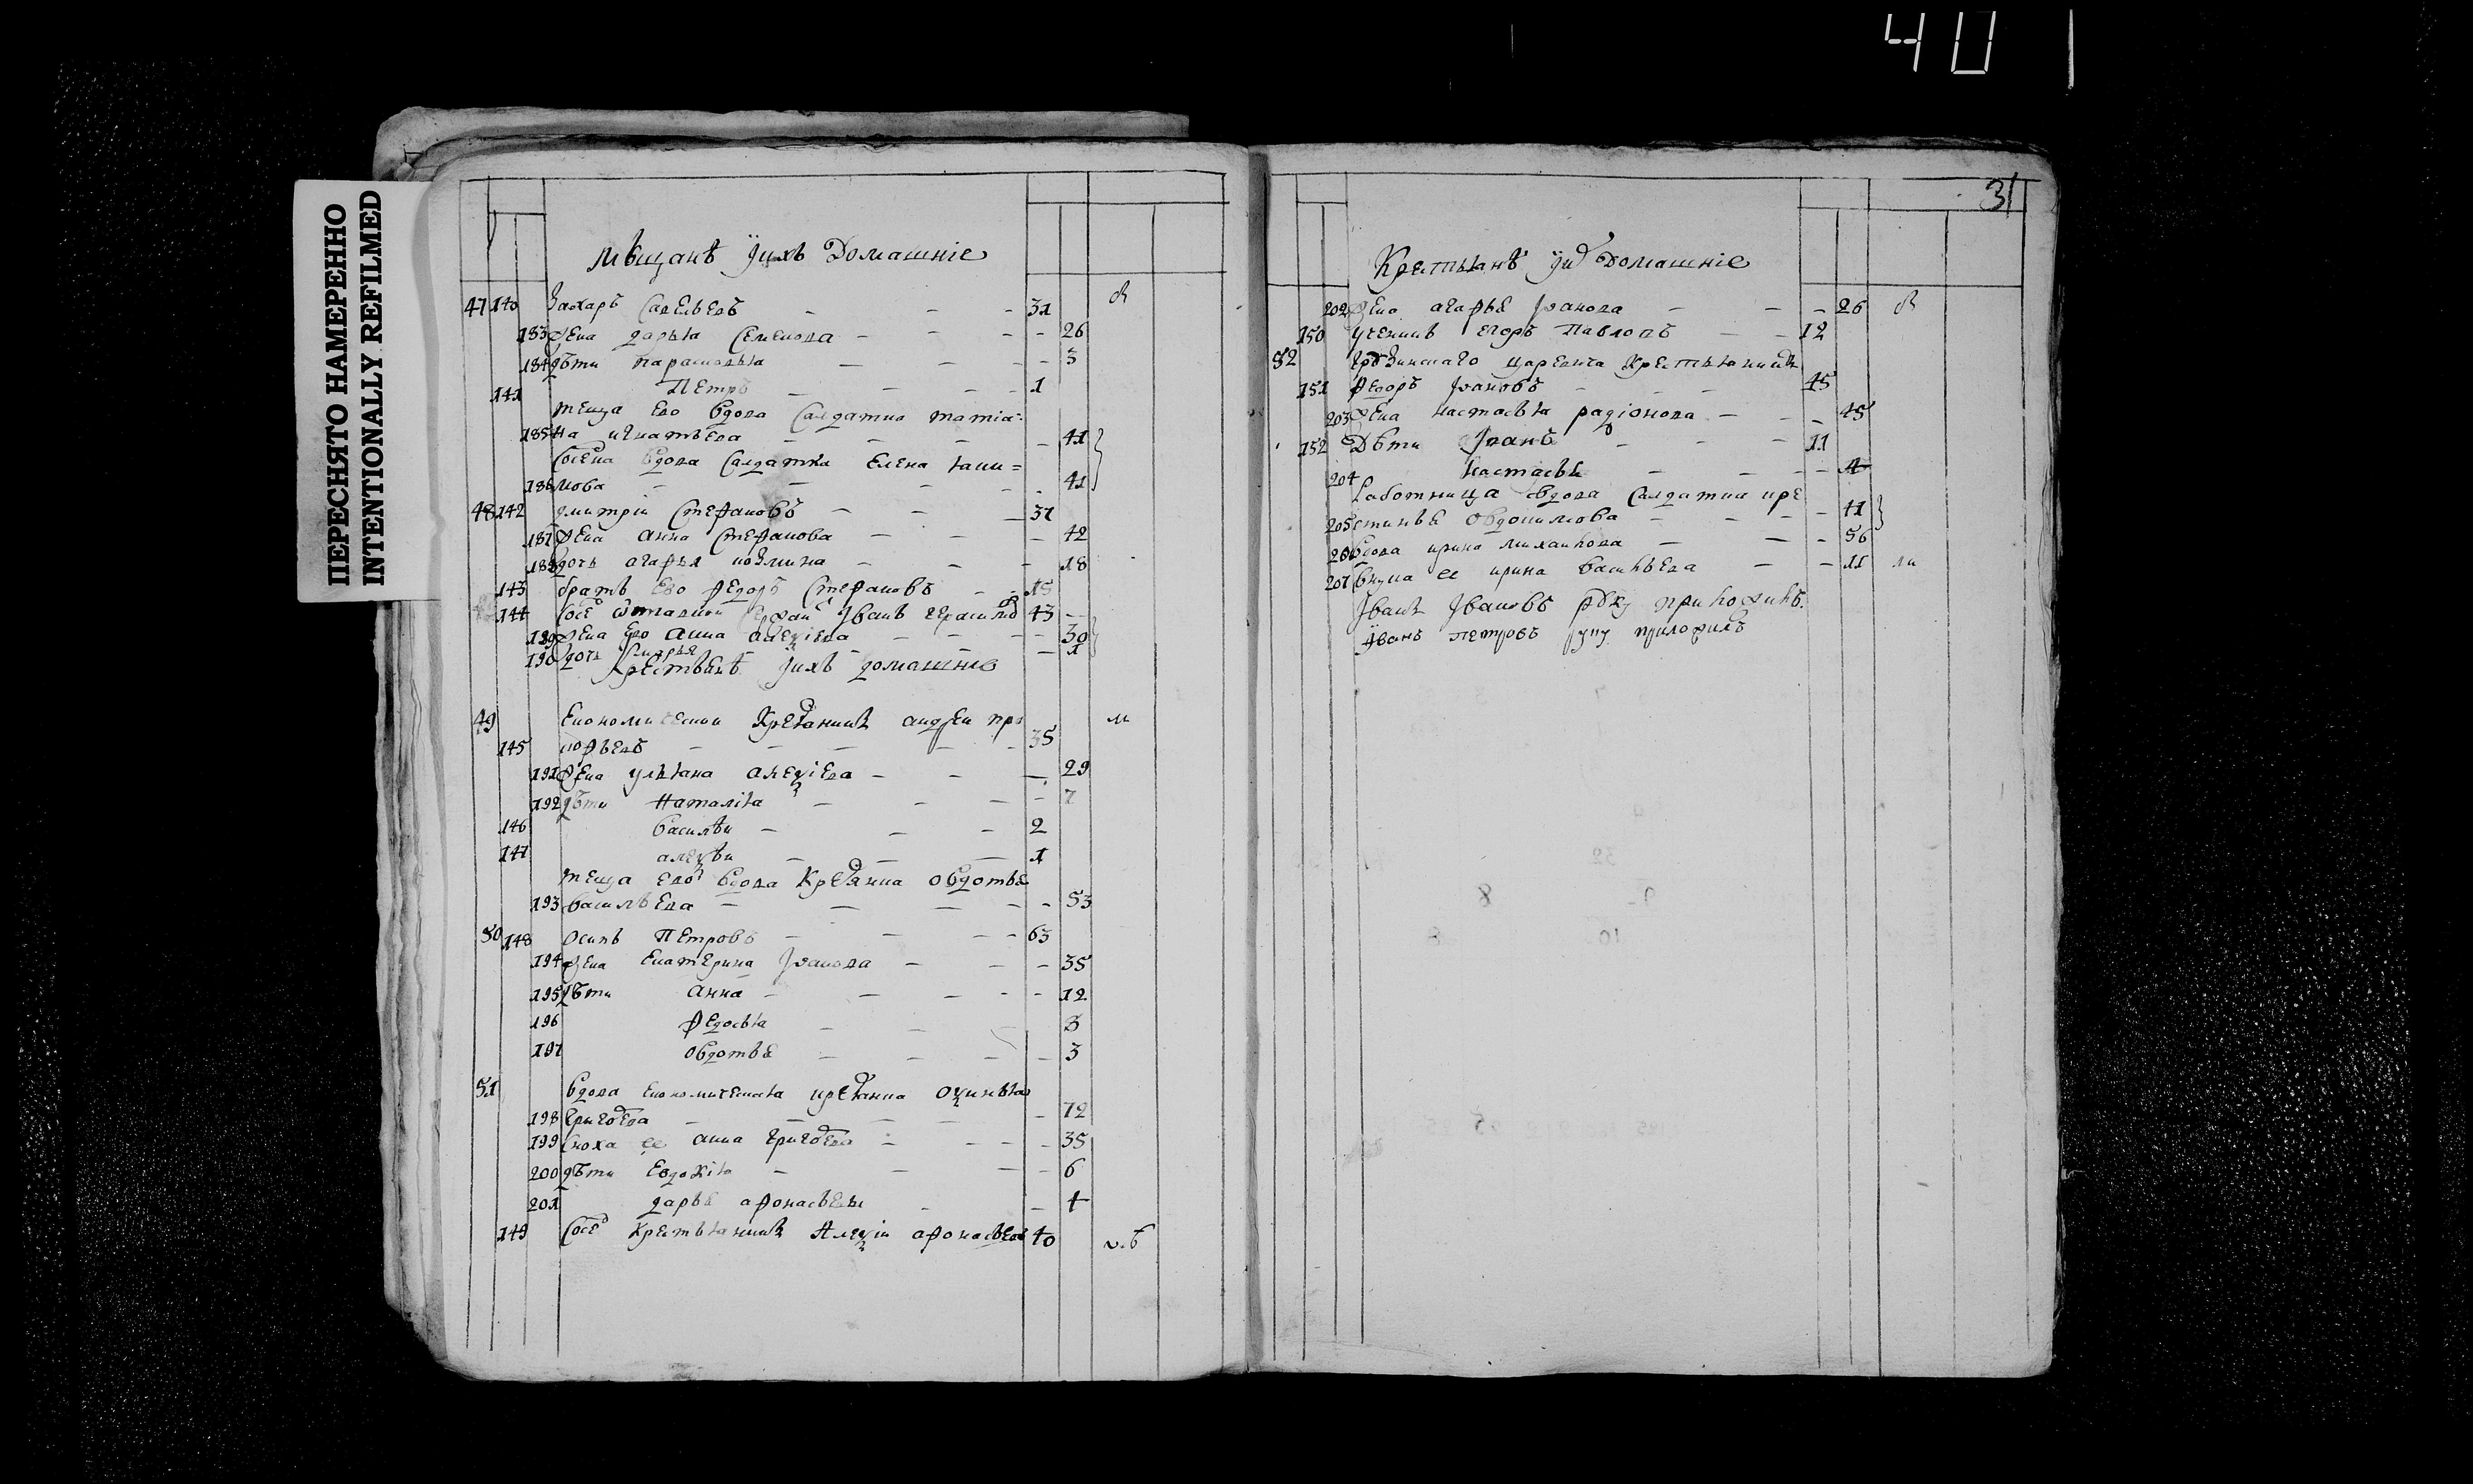 40
ПЕРЕСНЯТО НАМЕРЕННО
INTENTIONALLY REFILMED
мѣщанѣ ӱихъ Домашнїе
47 140 Захаръ Савельевъ - - - 31
183 жена дарья Семенова - - - - 26
184 дѣти парасковья - - - 3
141 Петръ - - - 1
теща Ево вдова Салдатка татіа=
185 на игнатьева - - - - 41
вдова Салдатка Елена яки=
186 мова - - - - 41
48 142 дмитрїи Стефановъ - - - 37
187 жена анна Стефанова - - - 42
188 дочь агафья козмина - - - 18
143 братъ Ево федоръ Стефановъ - - 15
144 Иванъ 43
189 жена Ево анна алеѯіева - - - - 30
190 дочь - - - 1
Крестьянѣ ӱихъ домашнїе
49 Економическои Крестьянинъ андреи про
145 кофьевъ - - - - - 35
191 жена ульяна алеѯіева - - - 29
192 дѣти Наталія - - - - 7
146 василѣи - - - 2
147 алеѯѣи - - - 1
теща ево вдова Крестьянка овдотья
193 васильева - - - - - 53
50 148 Осипъ Петровъ - - - - 63
194 жена Екатерина Іванова - - - 35
195 дѣти анна - - - - - 12
196 федосья - - - 8
197 овдотья - - - - 3
51 вдова економическая крестьянка оѯинья
198 григорьева - - - - 72
199 сноха ее анна григорьева - - - - 35
200 дѣти Евдокія - - - - 6
201 дарья афонасьевы - - 4
149 Крестьянинъ Алеѯіи афонасьевъ 40
31
Крестьянѣ ӱихъ домашнїе
202 жена агафья Іванова - - - 26
150 ученикъ егоръ Павловъ - - 12
52 грузинскаго царевича Крестьянинъ
151 федоръ Івановъ - - - 45
203 жена настасья радіонова - - - 45
152 Дѣти Іванъ - - - 11
204 настасья - - - - 4
Работница вдова Салдатка кре
205 стинья овдокимова - - - - 41
206 вдова ирина михаилова - - - 56
207 внука ее ирина васильева - - 11
Іванъ Івановъ руку приложилъ.
Иванъ петровъ руку приложилъ